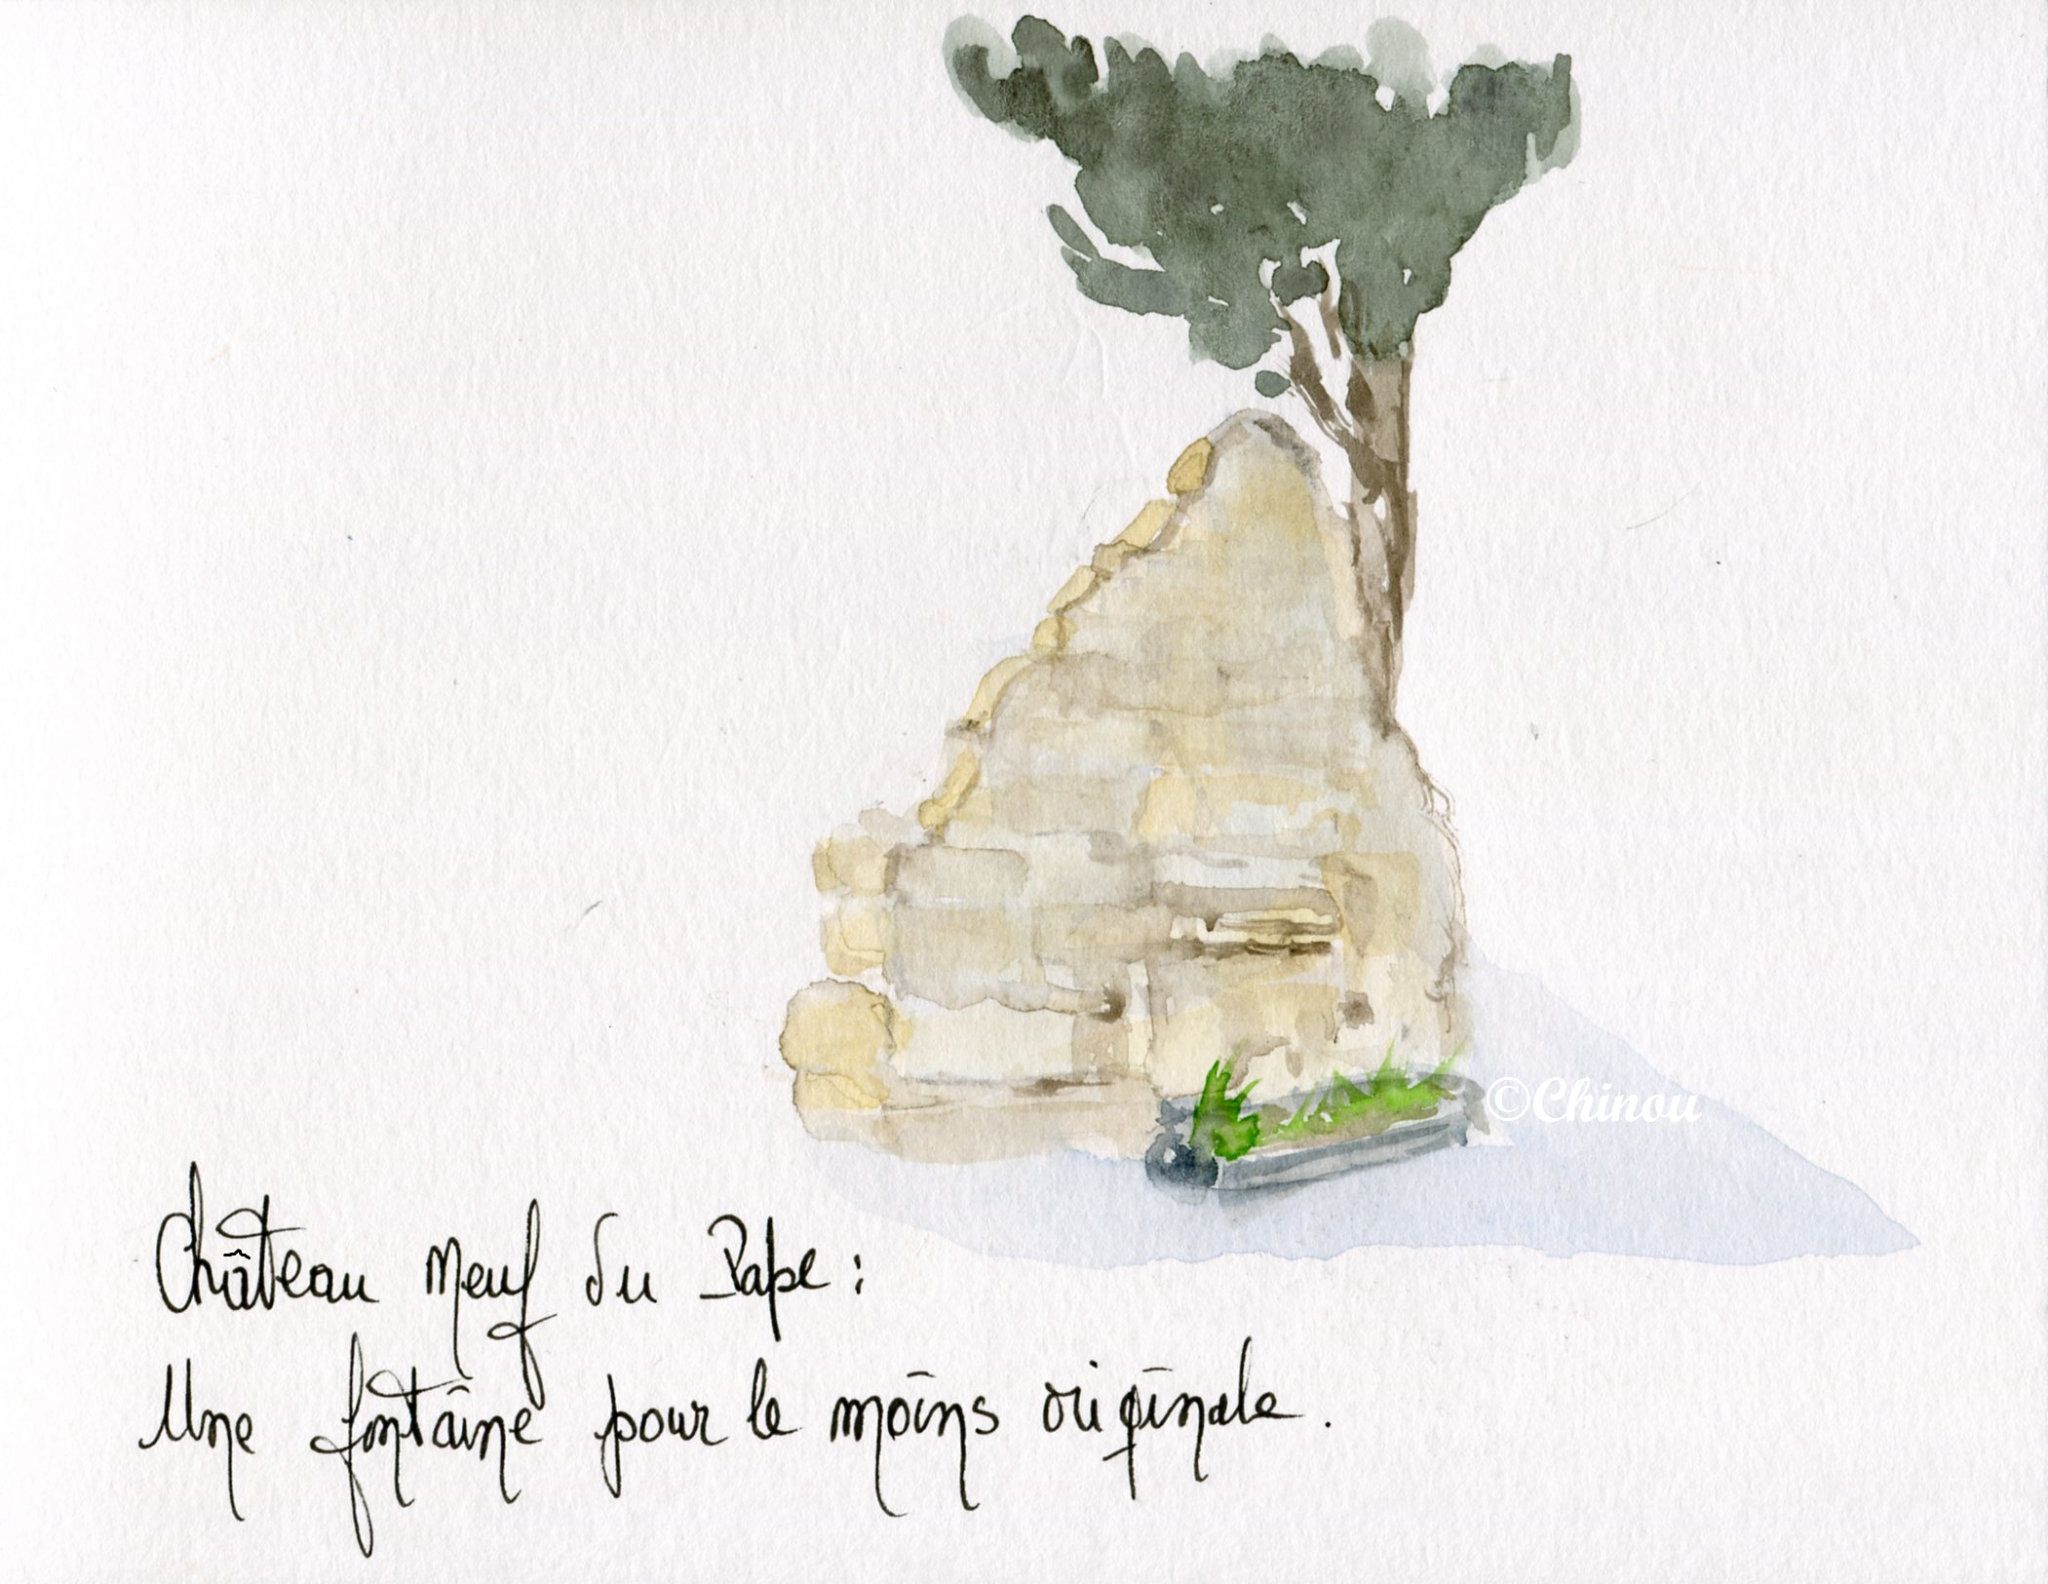 ©Chinou
Château neuf du Pape :
Une fontaine pour le moins originale.